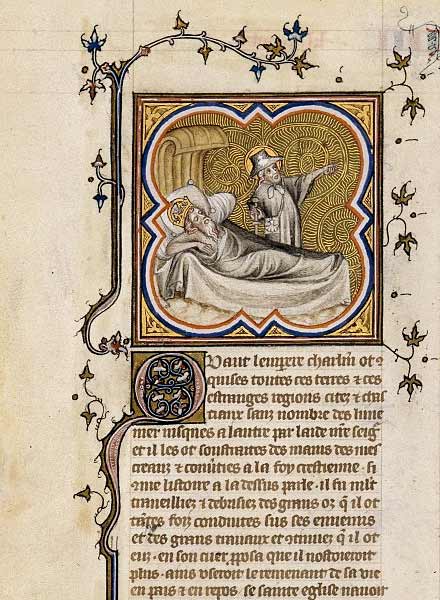 Quant lempere charlm ot 9
quises toutes ces terres & ces
estranges regions citez & chas
tiaux sanz nombre des lune
mer iusques a lautre par laide nre seigr
et il les ot soustraites des mains des mes
creanz & conuties a la foy crestienne. si
9me listoire a la dessus parle. il fu mlt
trauelliez & debrisiez des granz oz q il ot
tantes foiz conduites sus ses ennemis
et des granz trauaux et 9tinuez q il ot
euz. en son cuer pposa que il nostoieroit
plus. ains useroit le remenant de sa vie
en pais & en repos. se sainte eglise nauoit